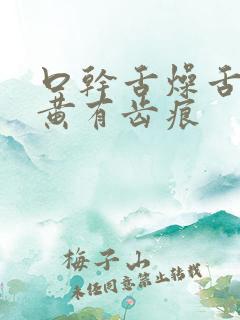 口幹舌燥舌
黄有齿痕
梅子山
未经同意禁止转载